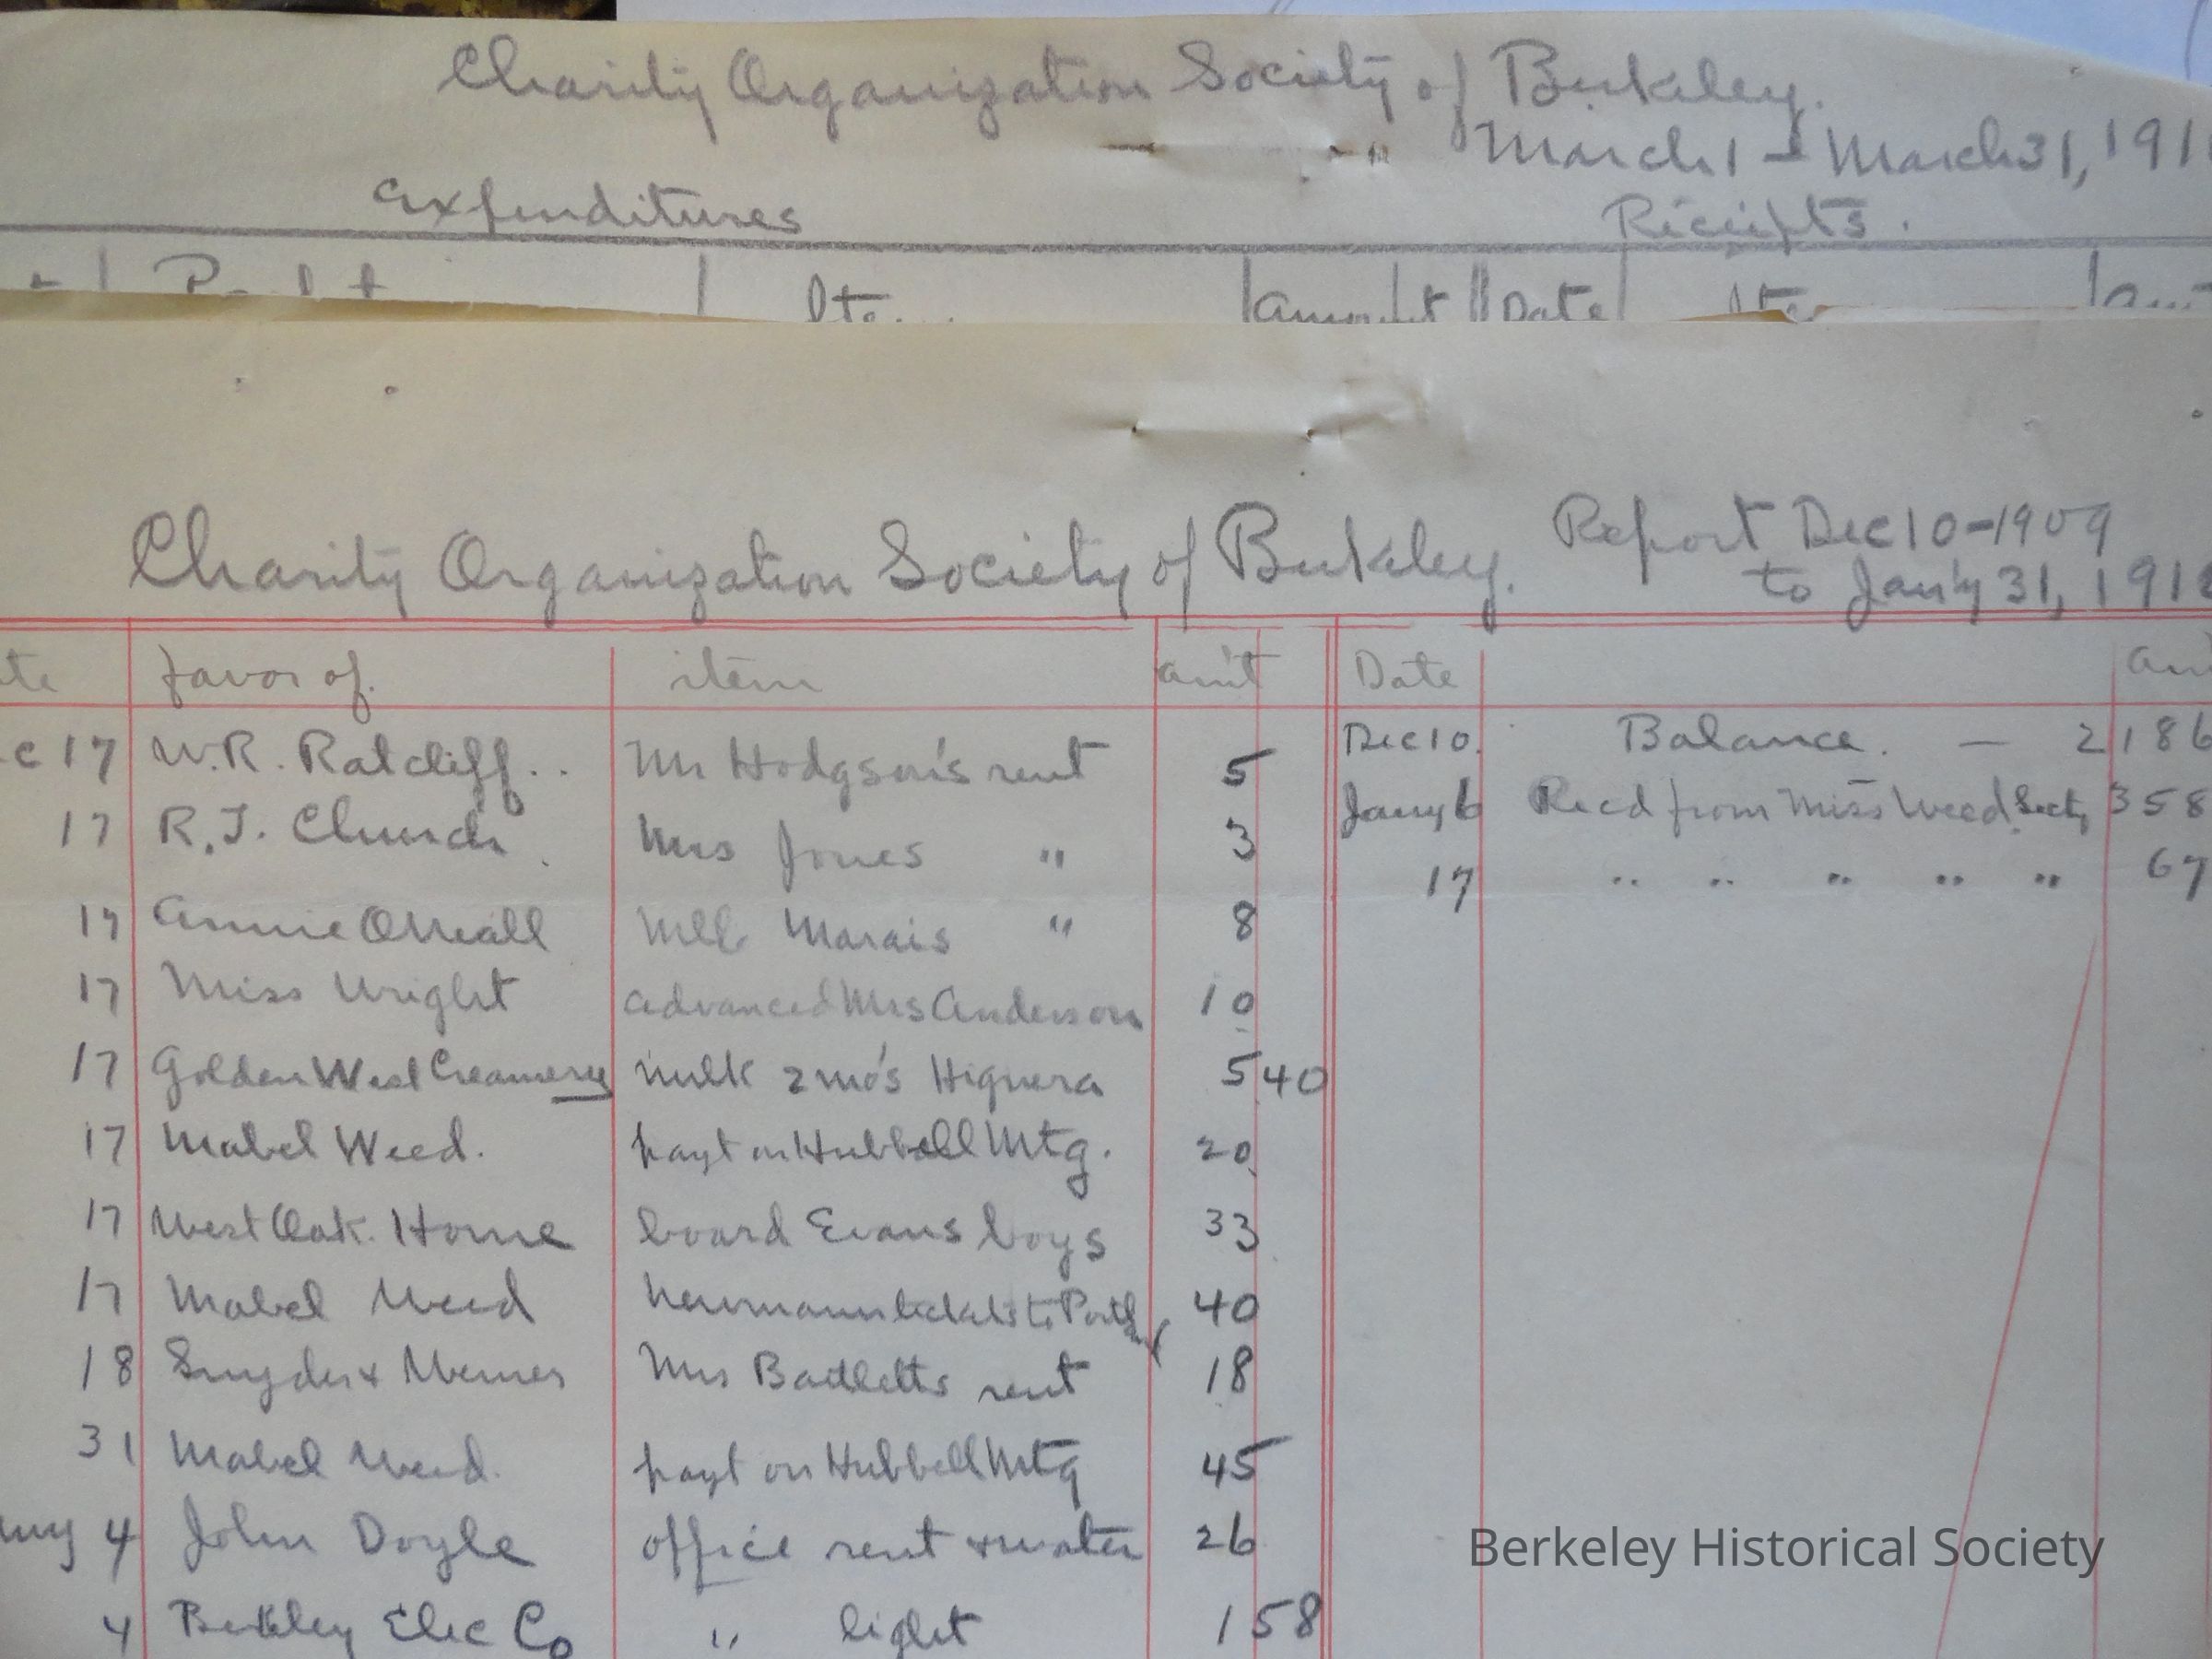 Charity Organization Society of Berkeley.
" " March 1 - March 31, 191
Expenditures Receipts.
Amount Date
Charity Organization Society of Berkeley. Report Dec 10-1909
to Jan'y 31, 191
te favor of. item am't Date am
c 17 W.R. Ratcliff.. Mr Hodgson's rent 5 Dec 10. Balance. — 2186
17 R.J. Church. Mrs Jones " 3 Jany 6 Recd from Miss Weed Secty 358
17 Annie ONeall Mlle Marais " 8 17 " " " " " 67
17 Miss Wright advanced Mrs Anderson 10
17 Golden West Creamery milk 2 mo's Higuera 5 40
17 Mabel Weed. payt on Hubbell Mtg. 20
17 West Oak. Home board Evans boys 33
17 Mabel Weed Newmann tickets to 40
18 Snyder & Mrs Bartletts rent 18
31 Mabel Weed. payt on Hubbell Mtg 45
ny 4 John Doyle office rent & water 26
4 Berkley Elec Co " light 1 58
Berkeley Historical Society